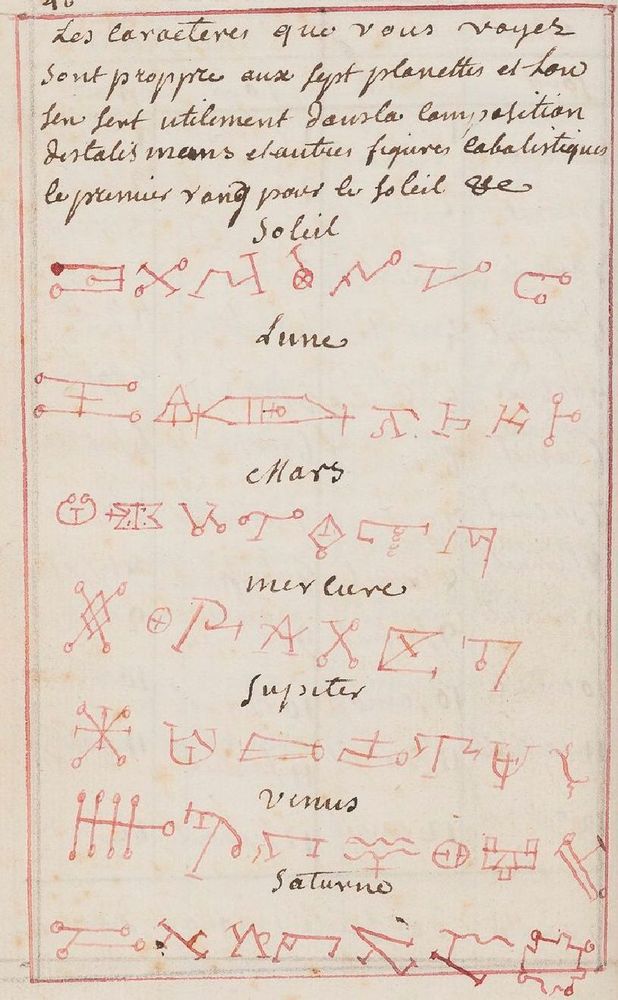 Les caracteres que vous voyez
sont proppre aux sept planettes et lon
sen sert utilement dans la composition
des talis mans et autres figures cabalistiques
le premier rang pour le soleil &c
Soleil
Lune
Mars
mercure
Jupiter
Venus
Saturne